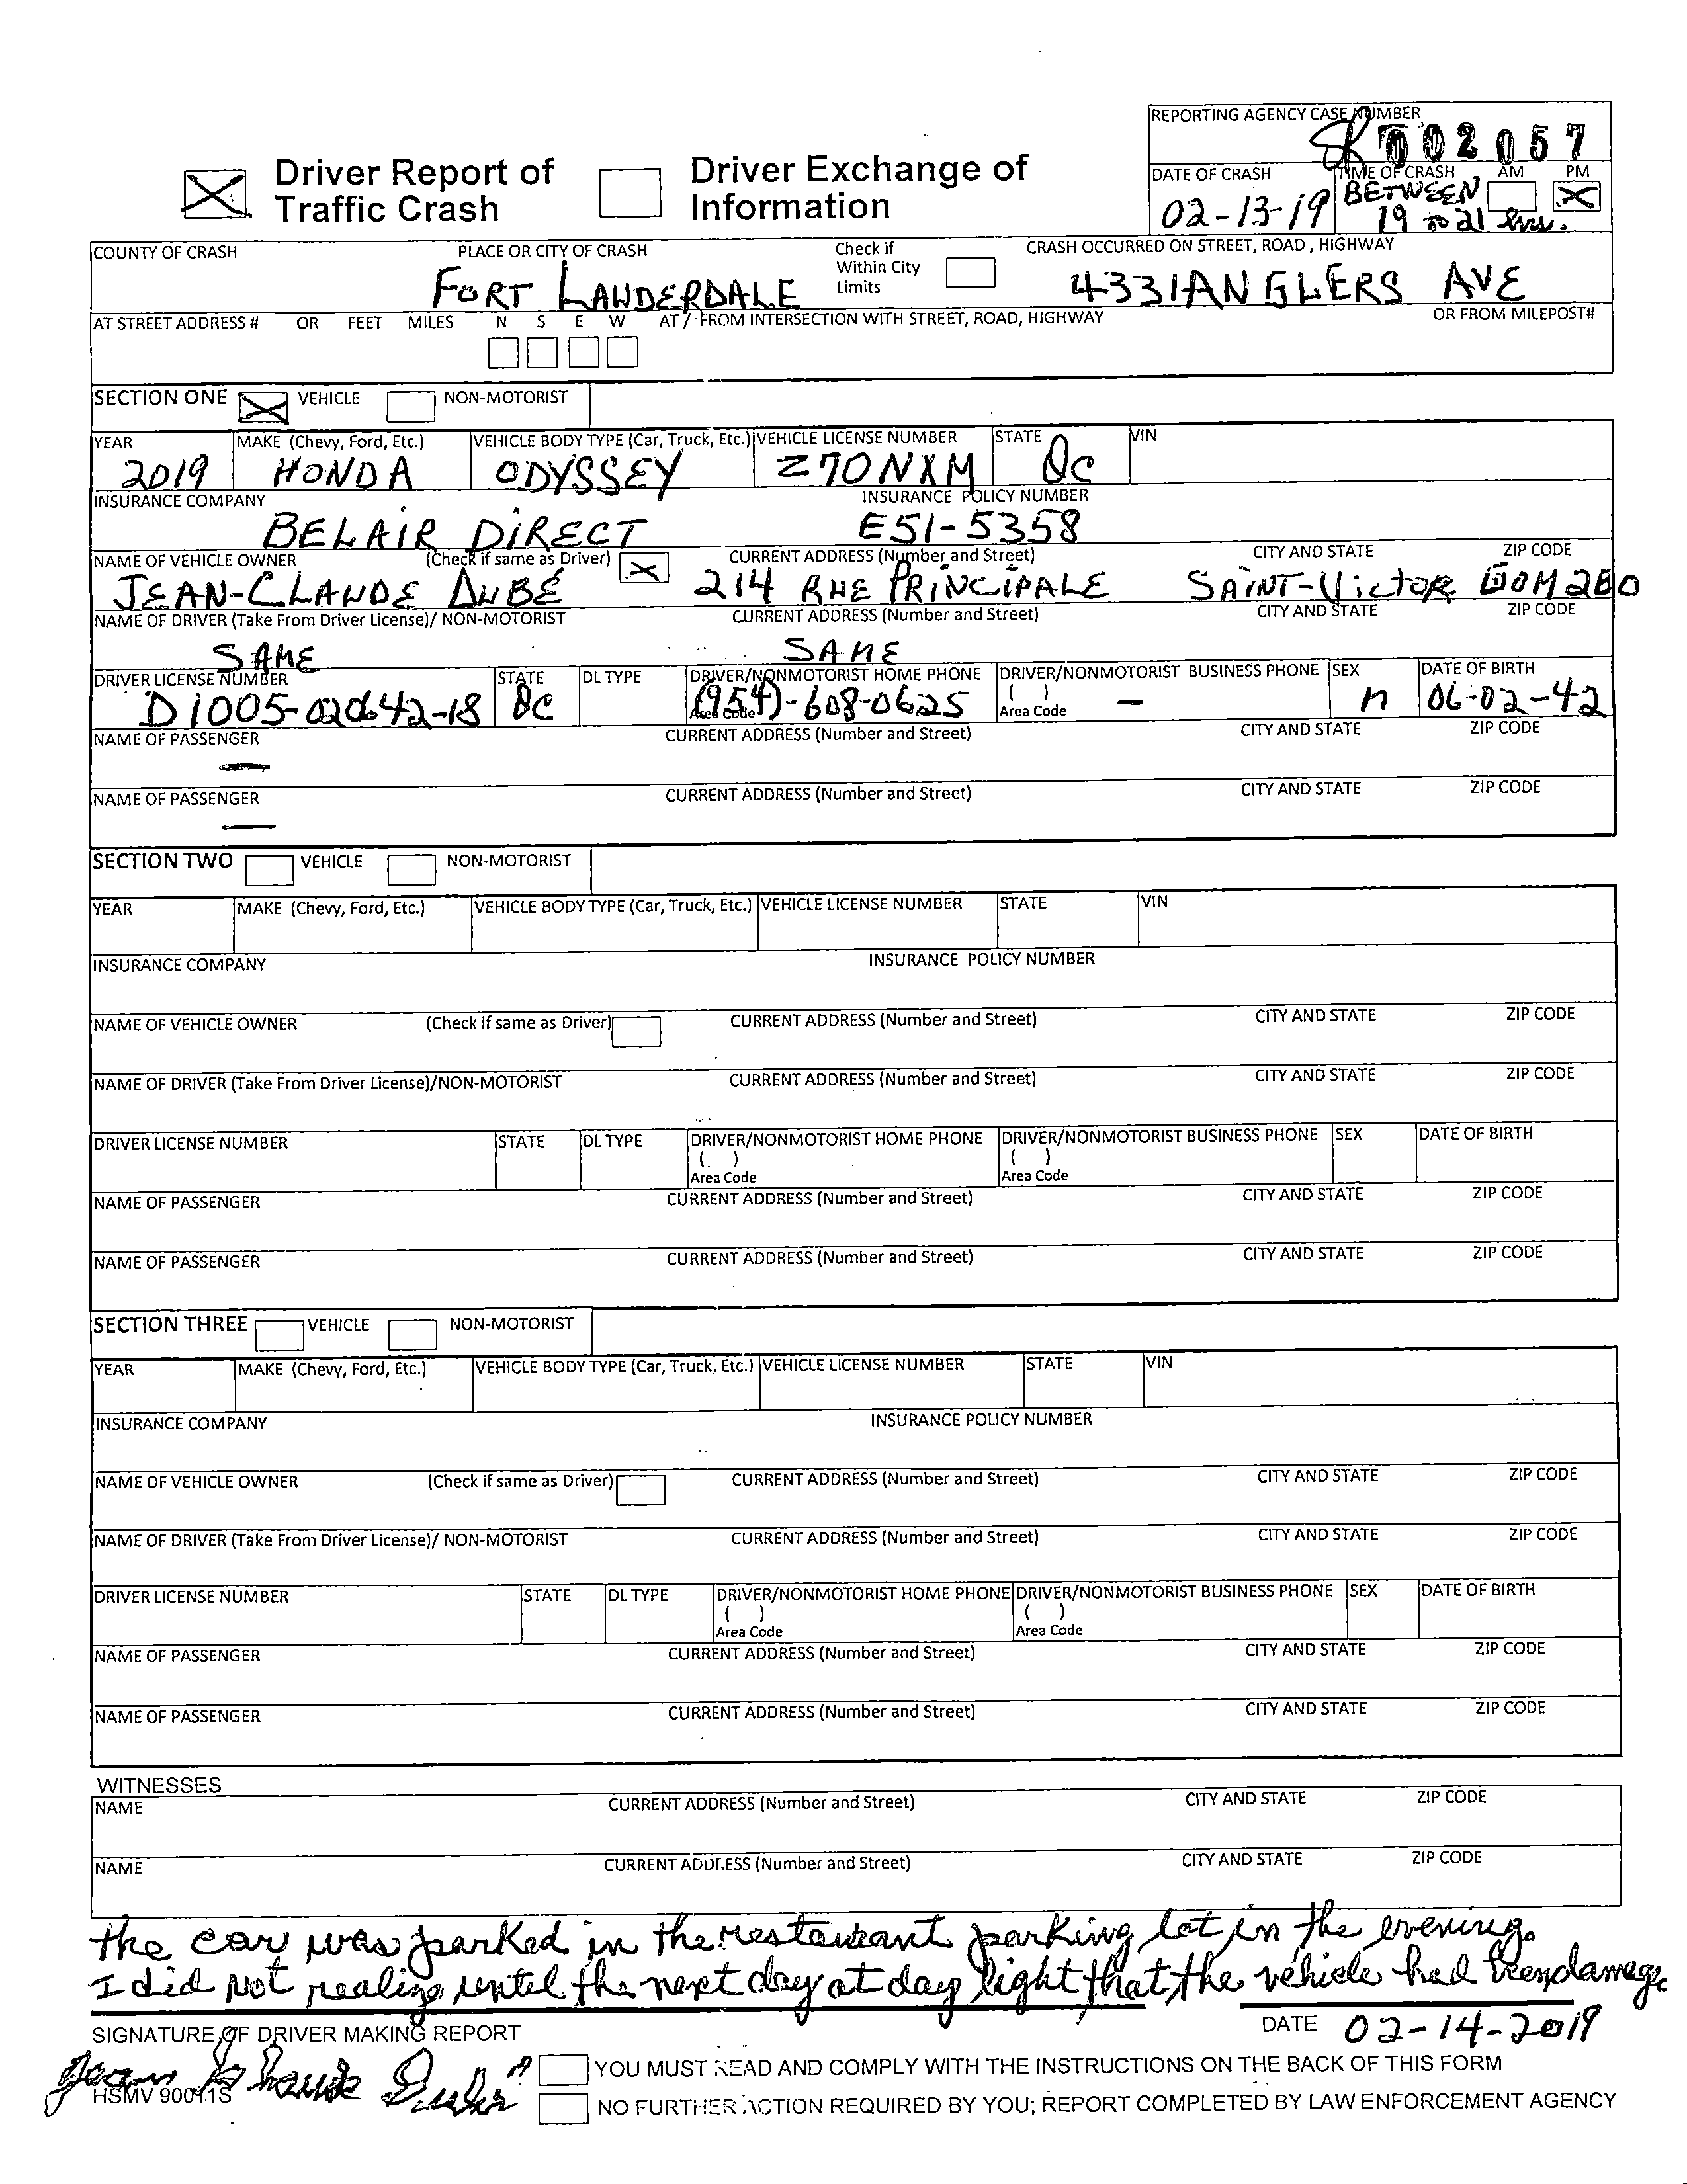 REPORTING AGENCY CASE NUMBER
002057
Driver Report of Traffic Crash
Driver Exchange of Information
DATE OF CRASH TIME OF CRASH AM PM
02-13-19 BETWEEN 19 to 21 hrs.
COUNTY OF CRASH PLACE OR CITY OF CRASH Check if Within City Limits CRASH OCCURRED ON STREET, ROAD, HIGHWAY
FORT LAUDERDALE 4331 ANGLERS AVE
AT STREET ADDRESS # OR FEET MILES N S E W AT / FROM INTERSECTION WITH STREET, ROAD, HIGHWAY OR FROM MILEPOST#
SECTION ONE VEHICLE NON-MOTORIST
YEAR MAKE (Chevy, Ford, Etc.) VEHICLE BODY TYPE (Car, Truck, Etc.) VEHICLE LICENSE NUMBER STATE VIN
2019 HONDA ODYSSEY Z70NXM QC
INSURANCE COMPANY INSURANCE POLICY NUMBER
BELAIR DIRECT E51-5358
NAME OF VEHICLE OWNER (Check if same as Driver) CURRENT ADDRESS (Number and Street) CITY AND STATE ZIP CODE
JEAN-CLAUDE DUBÉ 214 RUE PRINCIPALE SAINT-VICTOR G0M2B0
NAME OF DRIVER (Take From Driver License)/ NON-MOTORIST CURRENT ADDRESS (Number and Street) CITY AND STATE ZIP CODE
SAME SAME
DRIVER LICENSE NUMBER STATE DL TYPE DRIVER/NONMOTORIST HOME PHONE DRIVER/NONMOTORIST BUSINESS PHONE SEX DATE OF BIRTH
D1005-020642-18 QC (954)-608-0625 ( ) - M 06-02-42
Area Code Area Code
NAME OF PASSENGER CURRENT ADDRESS (Number and Street) CITY AND STATE ZIP CODE
—
NAME OF PASSENGER CURRENT ADDRESS (Number and Street) CITY AND STATE ZIP CODE
—
SECTION TWO VEHICLE NON-MOTORIST
YEAR MAKE (Chevy, Ford, Etc.) VEHICLE BODY TYPE (Car, Truck, Etc.) VEHICLE LICENSE NUMBER STATE VIN
INSURANCE COMPANY INSURANCE POLICY NUMBER
NAME OF VEHICLE OWNER (Check if same as Driver) CURRENT ADDRESS (Number and Street) CITY AND STATE ZIP CODE
NAME OF DRIVER (Take From Driver License)/NON-MOTORIST CURRENT ADDRESS (Number and Street) CITY AND STATE ZIP CODE
DRIVER LICENSE NUMBER STATE DL TYPE DRIVER/NONMOTORIST HOME PHONE DRIVER/NONMOTORIST BUSINESS PHONE SEX DATE OF BIRTH
( ) ( )
Area Code Area Code
NAME OF PASSENGER CURRENT ADDRESS (Number and Street) CITY AND STATE ZIP CODE
NAME OF PASSENGER CURRENT ADDRESS (Number and Street) CITY AND STATE ZIP CODE
SECTION THREE VEHICLE NON-MOTORIST
YEAR MAKE (Chevy, Ford, Etc.) VEHICLE BODY TYPE (Car, Truck, Etc.) VEHICLE LICENSE NUMBER STATE VIN
INSURANCE COMPANY INSURANCE POLICY NUMBER
NAME OF VEHICLE OWNER (Check if same as Driver) CURRENT ADDRESS (Number and Street) CITY AND STATE ZIP CODE
NAME OF DRIVER (Take From Driver License)/ NON-MOTORIST CURRENT ADDRESS (Number and Street) CITY AND STATE ZIP CODE
DRIVER LICENSE NUMBER STATE DL TYPE DRIVER/NONMOTORIST HOME PHONE DRIVER/NONMOTORIST BUSINESS PHONE SEX DATE OF BIRTH
( ) ( )
Area Code Area Code
NAME OF PASSENGER CURRENT ADDRESS (Number and Street) CITY AND STATE ZIP CODE
NAME OF PASSENGER CURRENT ADDRESS (Number and Street) CITY AND STATE ZIP CODE
WITNESSES
NAME CURRENT ADDRESS (Number and Street) CITY AND STATE ZIP CODE
NAME CURRENT ADDRESS (Number and Street) CITY AND STATE ZIP CODE
the car was parked in the restaurant parking lot in the evening.
I did not realize until the next day at day light that the vehicle had been damage
SIGNATURE OF DRIVER MAKING REPORT DATE 02-14-2019
Jean Claude Dubé
YOU MUST READ AND COMPLY WITH THE INSTRUCTIONS ON THE BACK OF THIS FORM
HSMV 90011S
NO FURTHER ACTION REQUIRED BY YOU; REPORT COMPLETED BY LAW ENFORCEMENT AGENCY